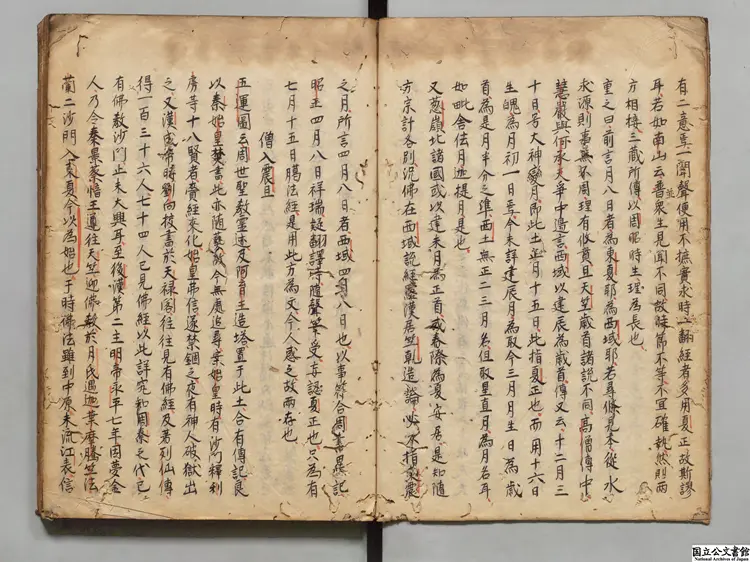 有二意至一聞聲便用不摭實求時二翻經者多用夏正故斯謬
耳若如南山云善衆生見聞不同故昧佛不等不宜確執然則兩
方相接三藏所傳以周昭時生理為長也
重之曰前言四月八日者為東夏耶為西域耶若尋條見本從水
求源則事無不周理有攸貫且天竺歲首諸說不同高僧傳中
慧嚴與何承天爭中邊言西域以建辰為歲首傳又云十二月三
十日号大神變月即此土正月十五日此指夏正也而用十六日
生魄為月初一日要令未詳建辰月為取今三月月生日為歲
首為是月半分之準西土無正二三月名但取星直月為月名耳
如毗舍佉月迦提月是也
又葱嶺北諸國或以建未月為正首或春際為夏安居是知隨
方宗計各別況佛在西域說經羅漢居竺乾造論以水指東震
之月所言四月八日者西域四月八日也以事符合周書異記
昭王四月八日祥瑞疑翻譯時隨聲筆受妄認夏正也只為有
七月十五日臈法經是用此方為文今人惑之故兩存也
僧入震旦
五運圖云周世聖教靈迹及阿育王造塔置于此土合有傳記良
以秦始皇焚書此亦隨爇故今無處追尋案始皇時有沙門釋利
房等十八賢者賫經來化始皇弗信遂禁錮之夜有神人破獄出
之又漢成帝時劉向挍書於天禄閣往往見有佛經及著列仙傳
得一百三十六人七十四人已見佛經以此詳究知周秦之代已
有佛教沙門止未大興耳至後漢第二主明帝永平七年因夢金
人乃令秦景蔡愔王遵往天竺迎佛教於月氏遇迦葉摩騰竺法
蘭二沙門入東夏今以為始也于時佛法雖到中原未流江表信
国立公文書館
National Archives of Japan